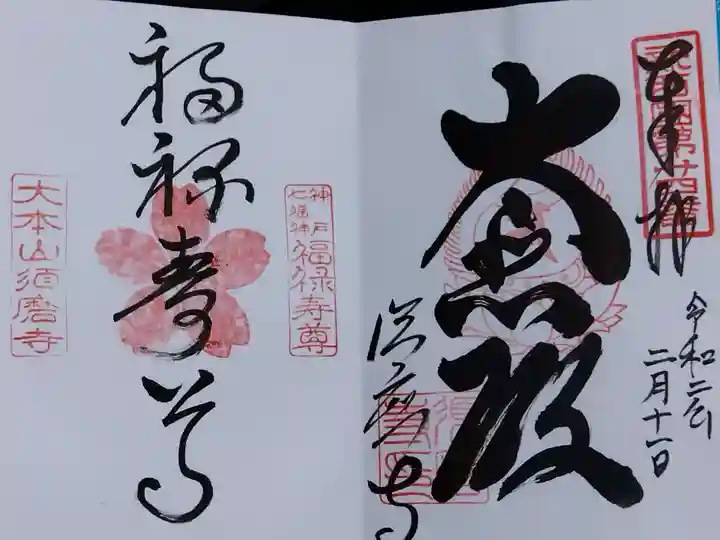 奉拝
令和二年
二月十一日
大悲殿
須磨寺
神戸
七福神
福禄寿尊
福禄寿尊
大本山須磨寺